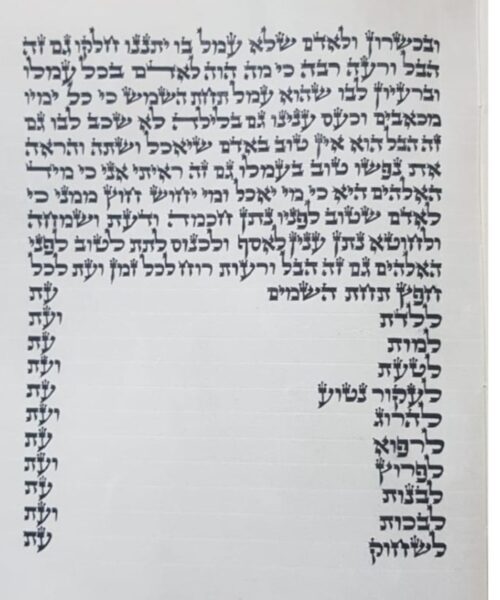 ובכשרון ולאדם שלא עמל בו יתננו חלקו גם זה
הבל ורעה רבה כי מה הוה לאדם בכל עמלו
וברעיון לבו שהוא עמל תחת השמש כי כל ימיו
מכאבים וכעס ענינו גם בלילה לא שכב לבו גם
זה הבל הוא אין טוב באדם שיאכל ושתה והראה
את נפשו טוב בעמלו גם זה ראיתי אני כי מיד
האלהים היא כי מי יאכל ומי יחוש חוץ ממני כי
לאדם שטוב לפניו נתן חכמה ודעת ושמחה
ולחוטא נתן ענין לאסף ולכנוס לתת לטוב לפני
האלהים גם זה הבל ורעות רוח לכל זמן ועת לכל
חפץ תחת השמים עת
ללדת ועת
למות עת
לטעת ועת
לעקור נטוע עת
להרוג ועת
לרפוא עת
לפרוץ ועת
לבנות עת
לבכות ועת
לשחוק עת